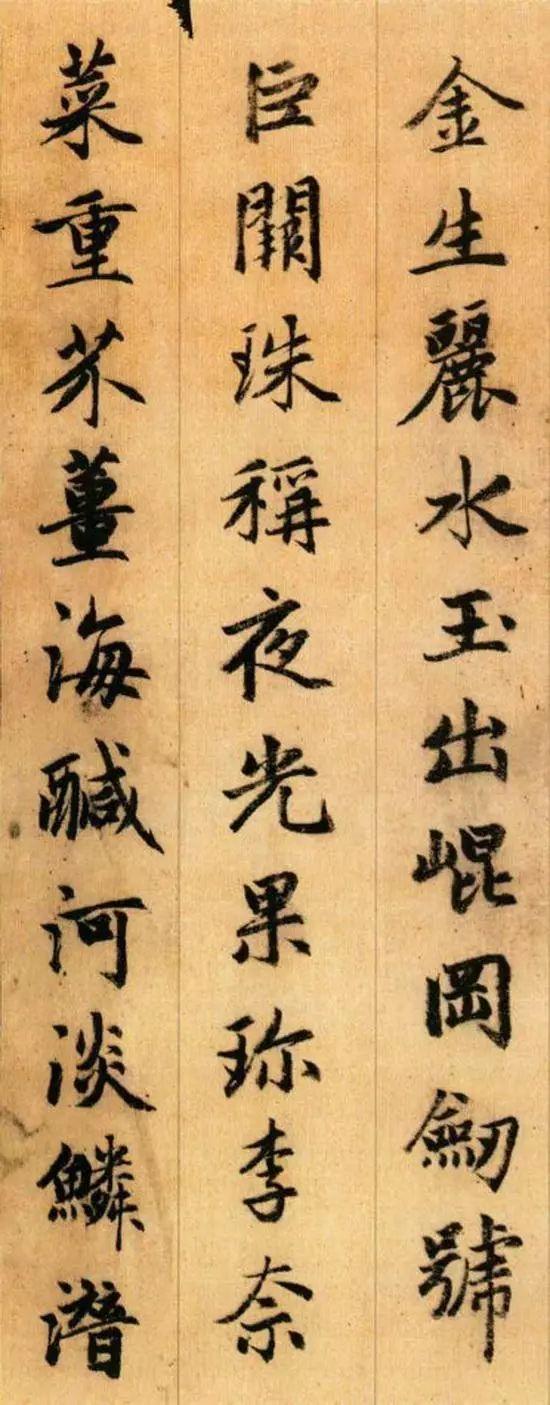 金生麗水玉出崐岡劒號
巨闕珠稱夜光果珎李柰
菜重芥薑海鹹河淡鱗潛